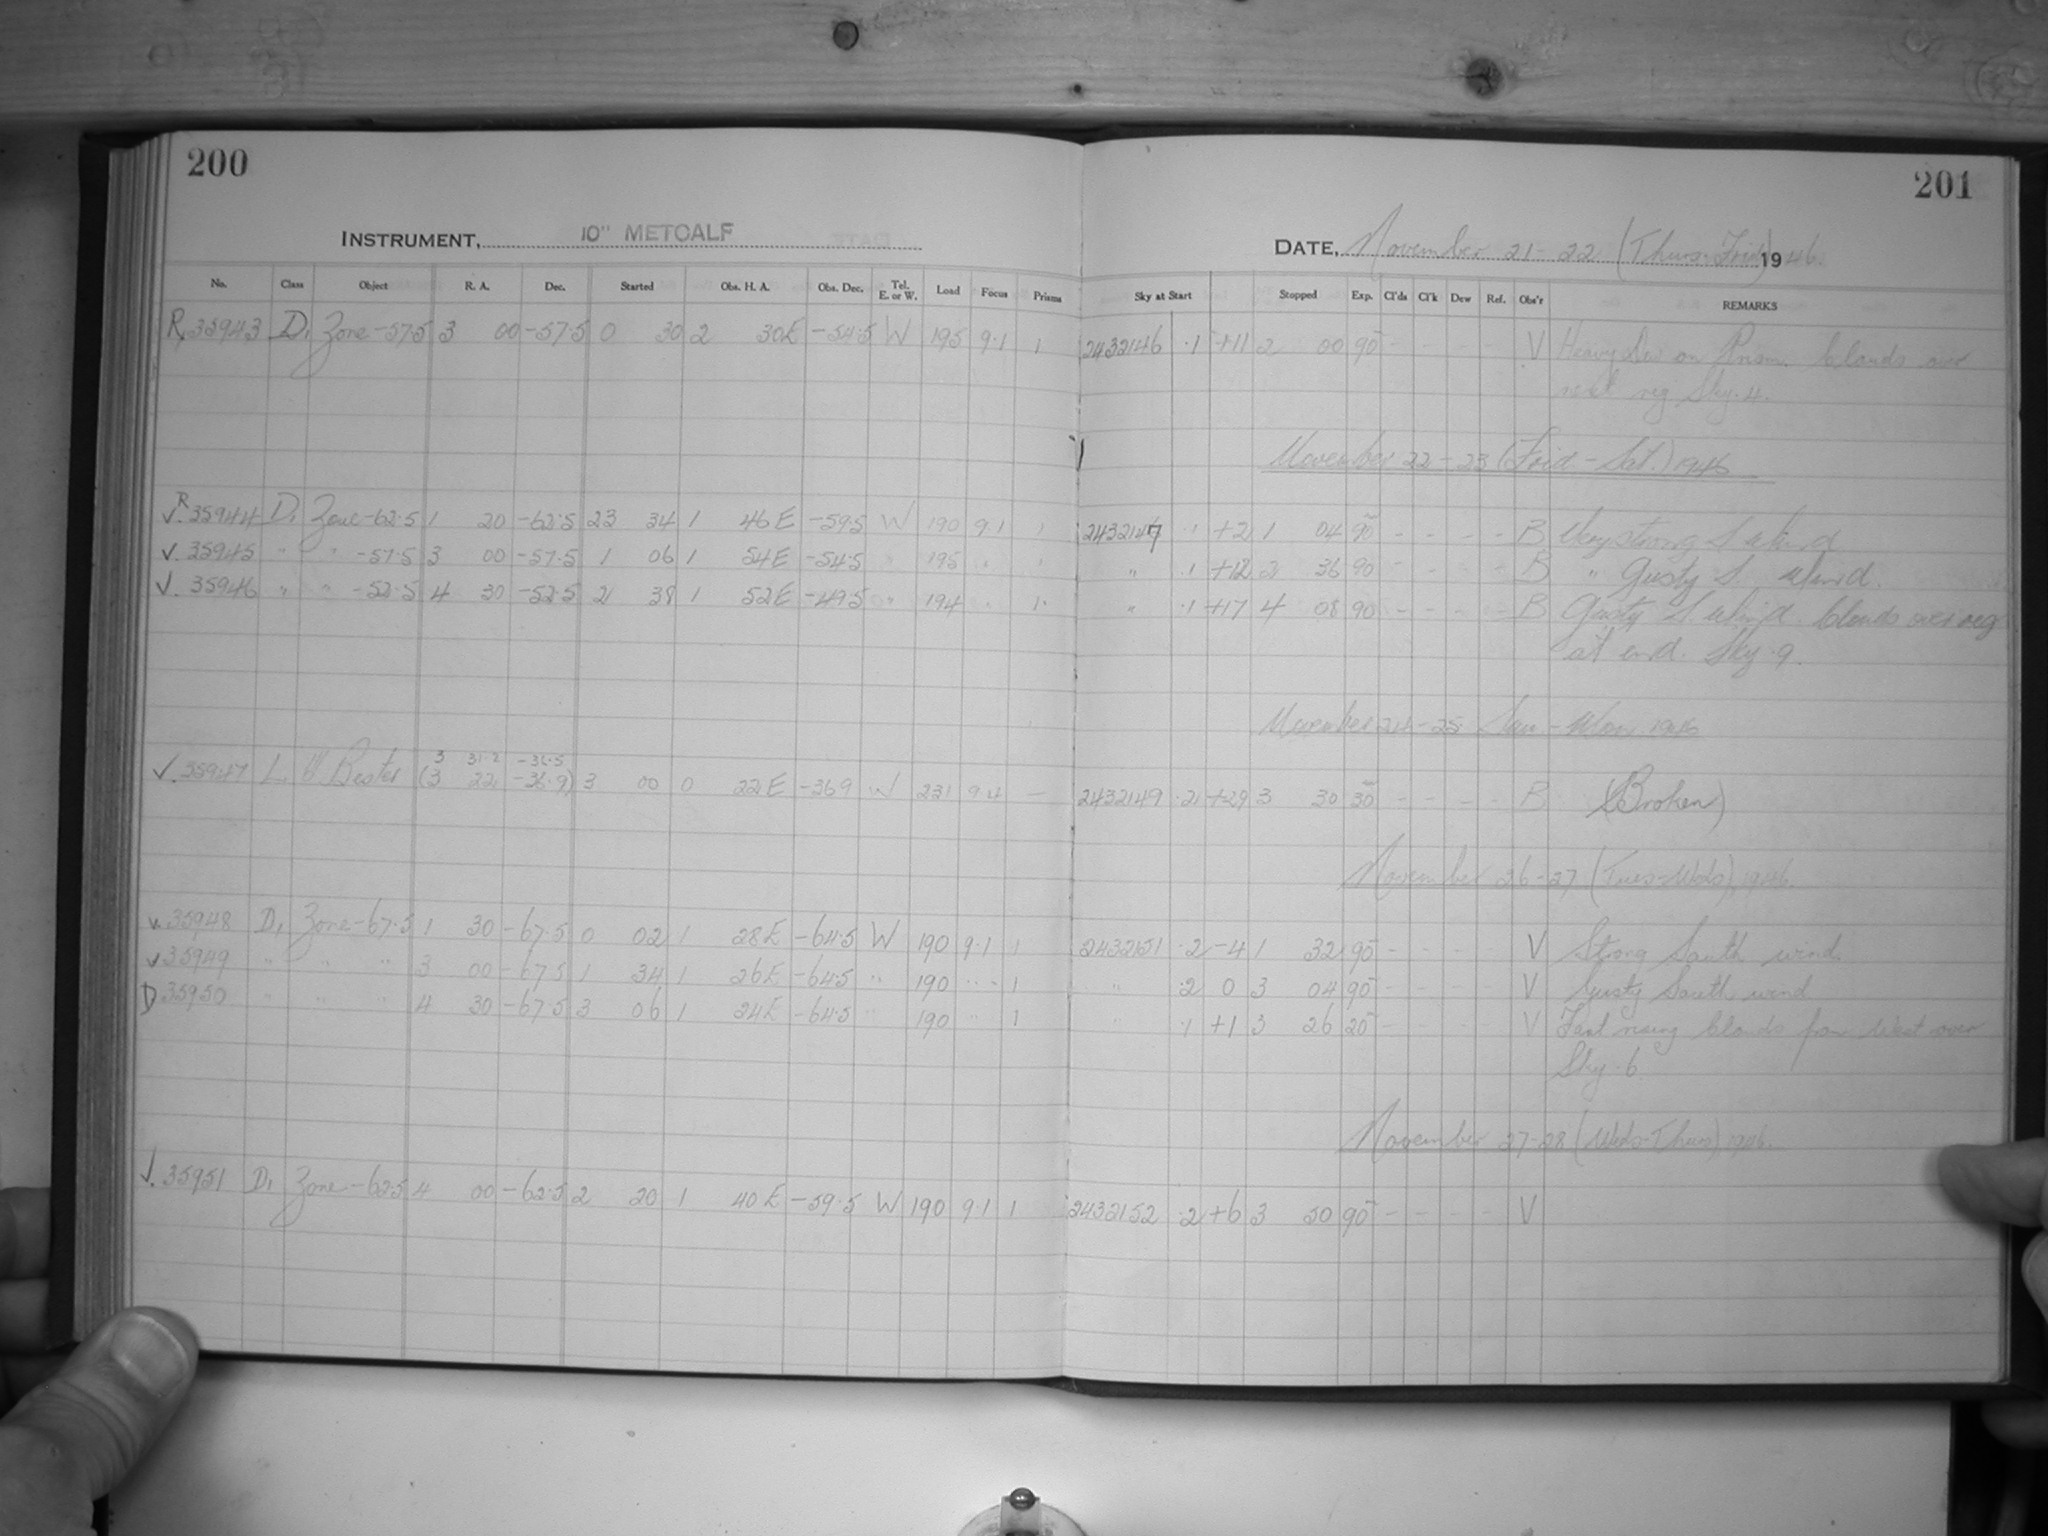 200
201
INSTRUMENT, 10" METCALF
DATE, November 21-22 (Thurs-Frid) 1946.
No. Class Object R. A. Dec. Started Obs. H. A. Obs. Dec. Tel. E. or W. Load Focus Prisms Sky at Start Stopped Exp. Cl'ds Cl'k Dew Ref. Obs'r REMARKS
R 35943 D, Zone -57.5 3 00 -57.5 0 30 2 30E -54.5 W 195 9.1 1 2432146 .1 +11 2 00 90 - - - - V Heavy Dew on Prism. Clouds over
next reg Sky .4.
November 22-23 (Frid-Sat.) 1946
√. R 35944 D, Zone -62.5 1 20 -62.5 23 34 1 46E -59.5 W 190 9.1 1 2432147 .1 +2 1 04 90 - - - - B Very strong S. wind
√. 35945 " " -57.5 3 00 -57.5 1 06 1 54E -54.5 " 195 " 1 " .1 +12 2 36 90 - - - - B " Gusty S. wind.
√. 35946 " " -52.5 4 30 -52.5 2 38 1 52E -49.5 " 194 " 1. " .1 +17 4 08 90 - - - - B Gusty S. wind. Clouds over reg
at end. Sky .9.
November 24-25 Sun-Mon. 1946
3 31.2 -36.5
√. 35947 L. Bester (3 22 -36.9) 3 00 0 22E -36.9 W 231 9.4 — 2432149 .2 +29 3 30 30 - - - - B (Broken)
November 26-27, (Tues-Weds), 1946.
35948 D, Zone -67.5 1 30 -67.5 0 02 1 28E -64.5 W 190 9.1 1 2432151 .2 -4 1 32 90 - - - - V Strong South wind.
√ 35949 " " " 3 00 -67.5 1 34 1 26E -64.5 " 190 " 1 " .2 0 3 04 90 - - - - V Gusty South wind
D 35950 " " " 4 30 -67.5 3 06 1 24E -64.5 " 190 " 1 " .1 +1 3 26 20 - - - - V Fast rising Clouds from West over
Sky .6.
November 27-28 (Weds-Thurs), 1946.
√. 35951 D, Zone -62.5 4 00 -62.5 2 20 1 40E -59.5 W 190 9.1 1 2432152 .2 +6 3 50 90 - - - - V